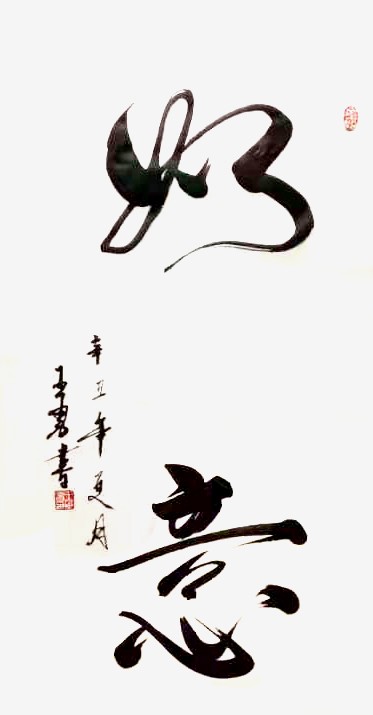 如意
辛丑年夏月
王書